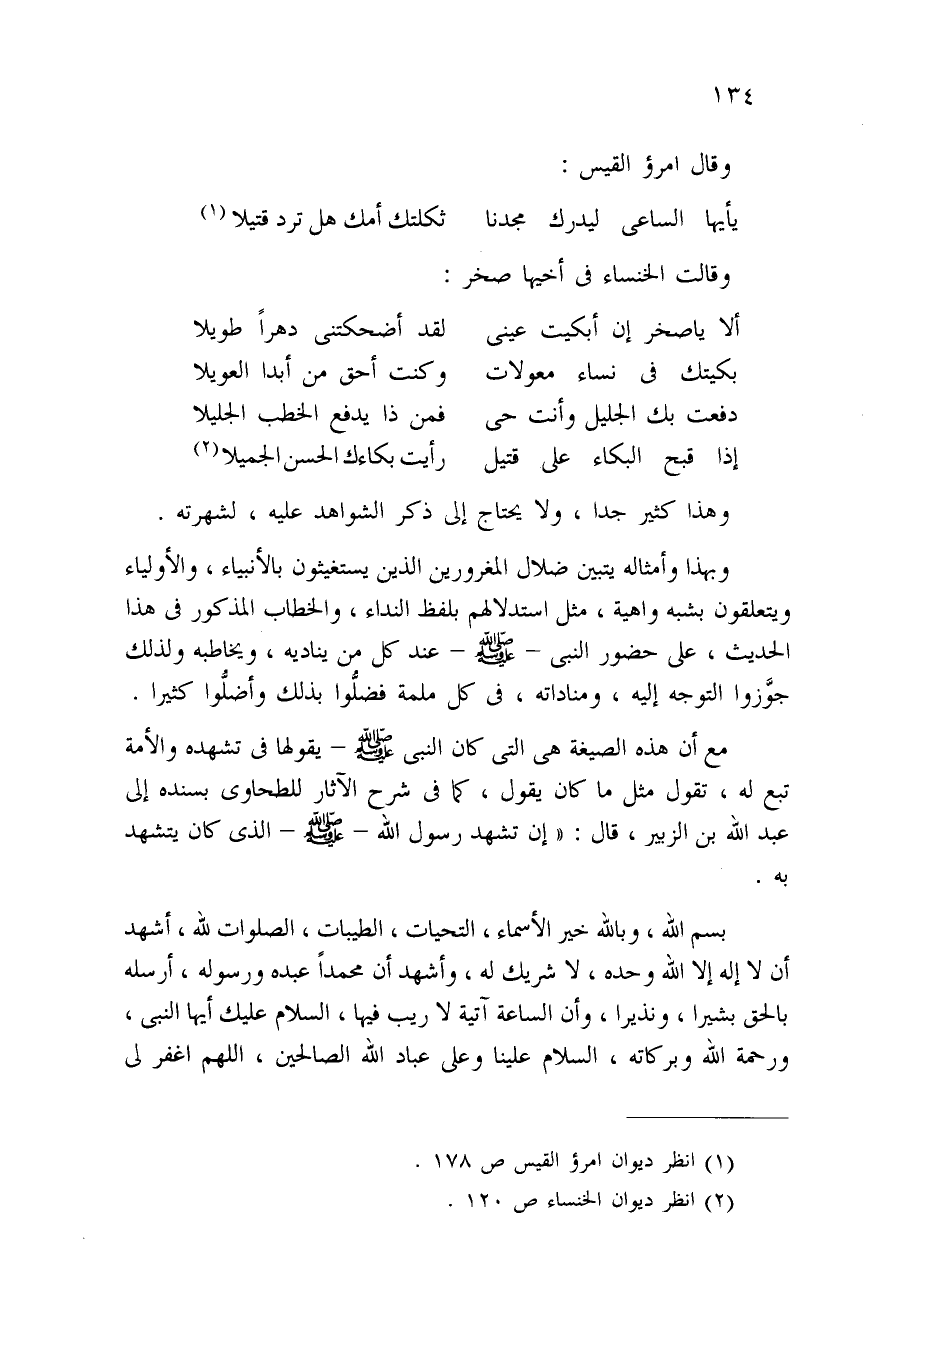 ١٣٤
وقال امرؤ القيس :
يأيها الساعى ليدرك مجدنا ثكلتك أمك هل ترد قتيلا (١)
وقالت الخنساء فى أخيها صخر :
ألا ياصخر إن أبكيت عينى لقد أضحكتنى دهراً طويلا
بكيتك فى نساء معولات وكنت أحق من أبدا العويلا
دفعت بك الجليل وأنت حى فمن ذا يدفع الخطب الجليلا
إذا قبح البكاء على قتيل رأيت بكاءك الحسن الجميلا (٢)
وهذا كثير جدا ، ولا يحتاج إلى ذكر الشواهد عليه ، لشهرته .
وبهذا وأمثاله يتبين ضلال المغرورين الذين يستغيثون بالأنبياء ، والأولياء
ويتعلقون بشبه واهية ، مثل استدلالهم بلفظ النداء ، والخطاب المذكور فى هذا
الحديث ، على حضور النبى – ﷺ – عند كل من يناديه ، ويخاطبه ولذلك
جوَّزوا التوجه إليه ، ومناداته ، فى كل ملمة فضلُّوا بذلك وأضلُّوا كثيرا .
مع أن هذه الصيغة هى التى كان النبى ﷺ – يقولها فى تشهده والأمة
تبع له ، تقول مثل ما كان يقول ، كما فى شرح الآثار للطحاوى بسنده إلى
عبد الله بن الزبير ، قال : « إن تشهد رسول الله – ﷺ – الذى كان يتشهد
به .
بسم الله ، وبالله خير الأسماء ، التحيات ، الطيبات ، الصلوات لله ، أشهد
أن لا إله إلا الله وحده ، لا شريك له ، وأشهد أن محمداً عبده ورسوله ، أرسله
بالحق بشيرا ، ونذيرا ، وأن الساعة آتية لا ريب فيها ، السلام عليك أيها النبى ،
ورحمة الله وبركاته ، السلام علينا وعلى عباد الله الصالحين ، اللهم اغفر لى
(١) انظر ديوان امرؤ القيس ص ١٧٨ .
(٢) انظر ديوان الخنساء ص ١٢٠ .